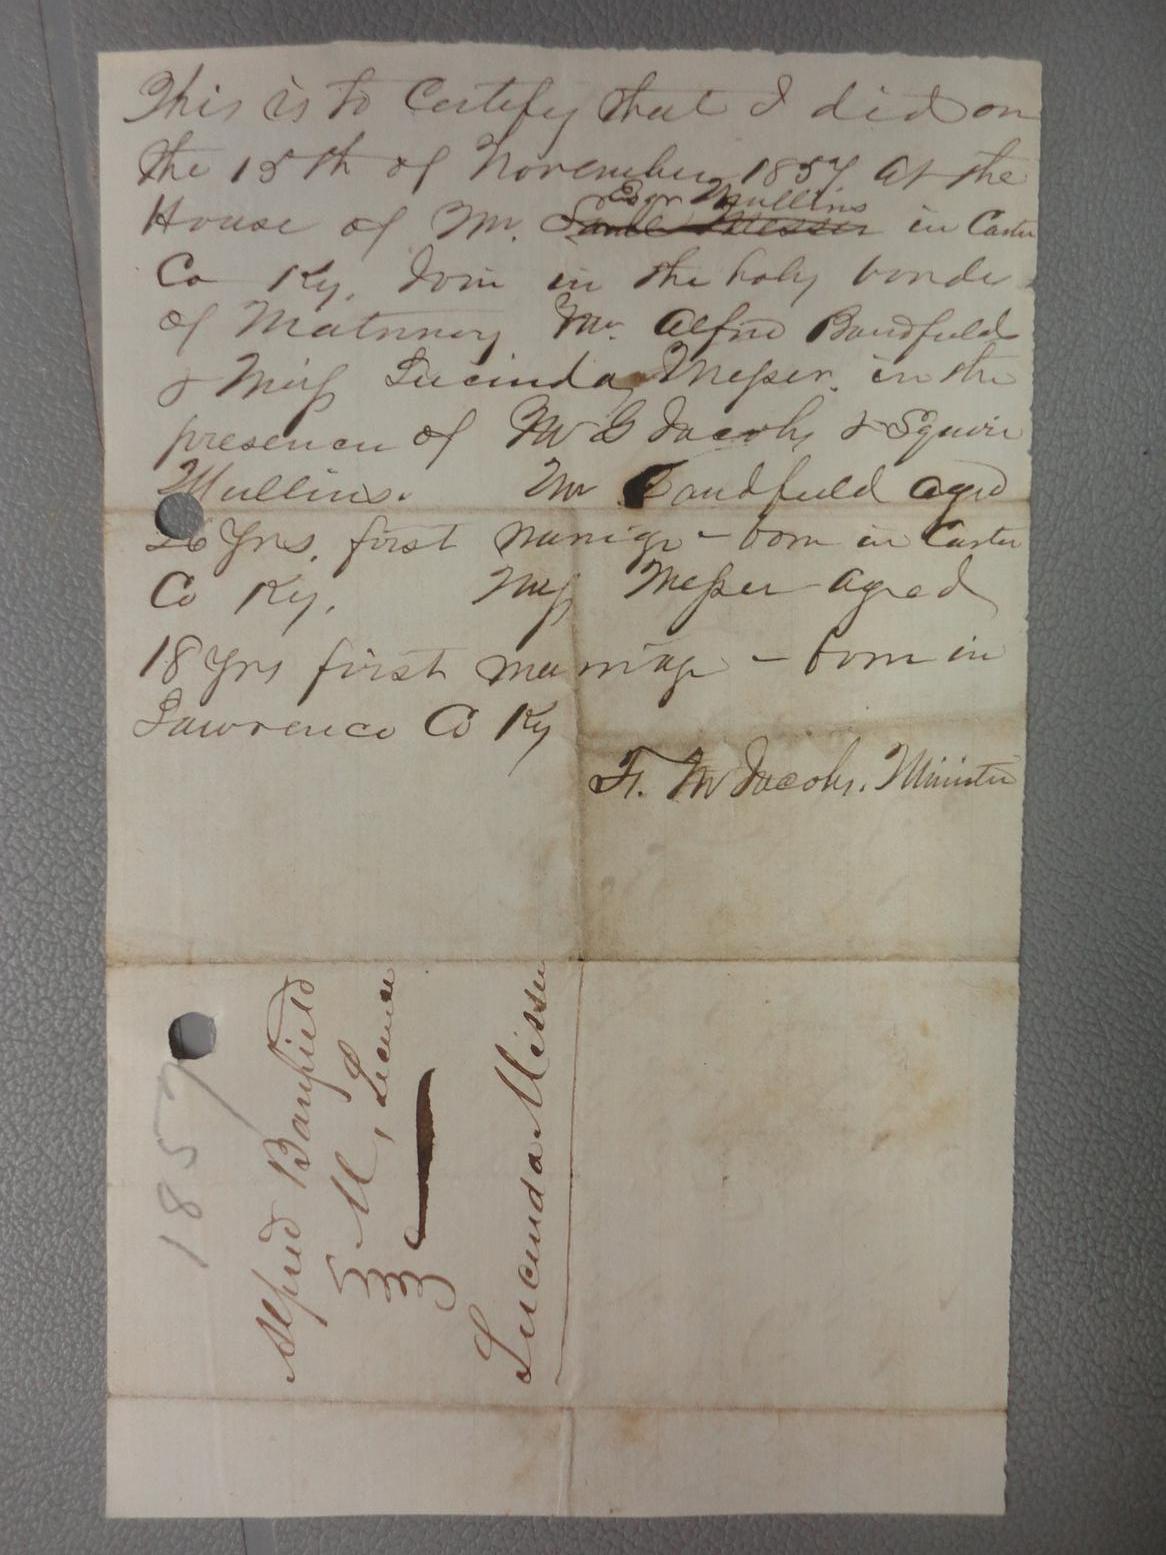 This is to Certify that I did on
the 15th of November 1857 at the
Esqr Mullins
House of Mr. Saml Messer in Carter
Co Ky. Join in the holy bonds
of Matrimony Mr. Alfred Bandfield
& Miss Lucinda Messer. in the
presence of M G Jacobs & Squire
Mullins. Mr Bandfield aged
26 Yrs. first marriage - born in Carter
Co Ky. Miss Messer aged
18 Yrs first marriage - born in
Lawrence Co Ky
F. M Jacobs. Minister
1857
Alfred Banfield
M, License
Lucinda Messer